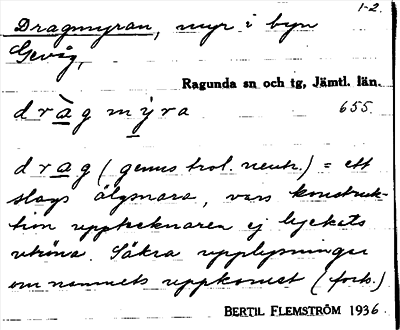 1-2.
Dragmyran, myr i byn
Gevåg,
Ragunda sn och tg, Jämtl. län.
dràg mýra 655.
drag (genus trol. neutr.) = ett
slags älgsnara, vars konstruk-
tion upptecknaren ej lyckats
utröna. Säkra upplysningar
om namnets uppkomst (forts.)
BERTIL FLEMSTRÖM 1936